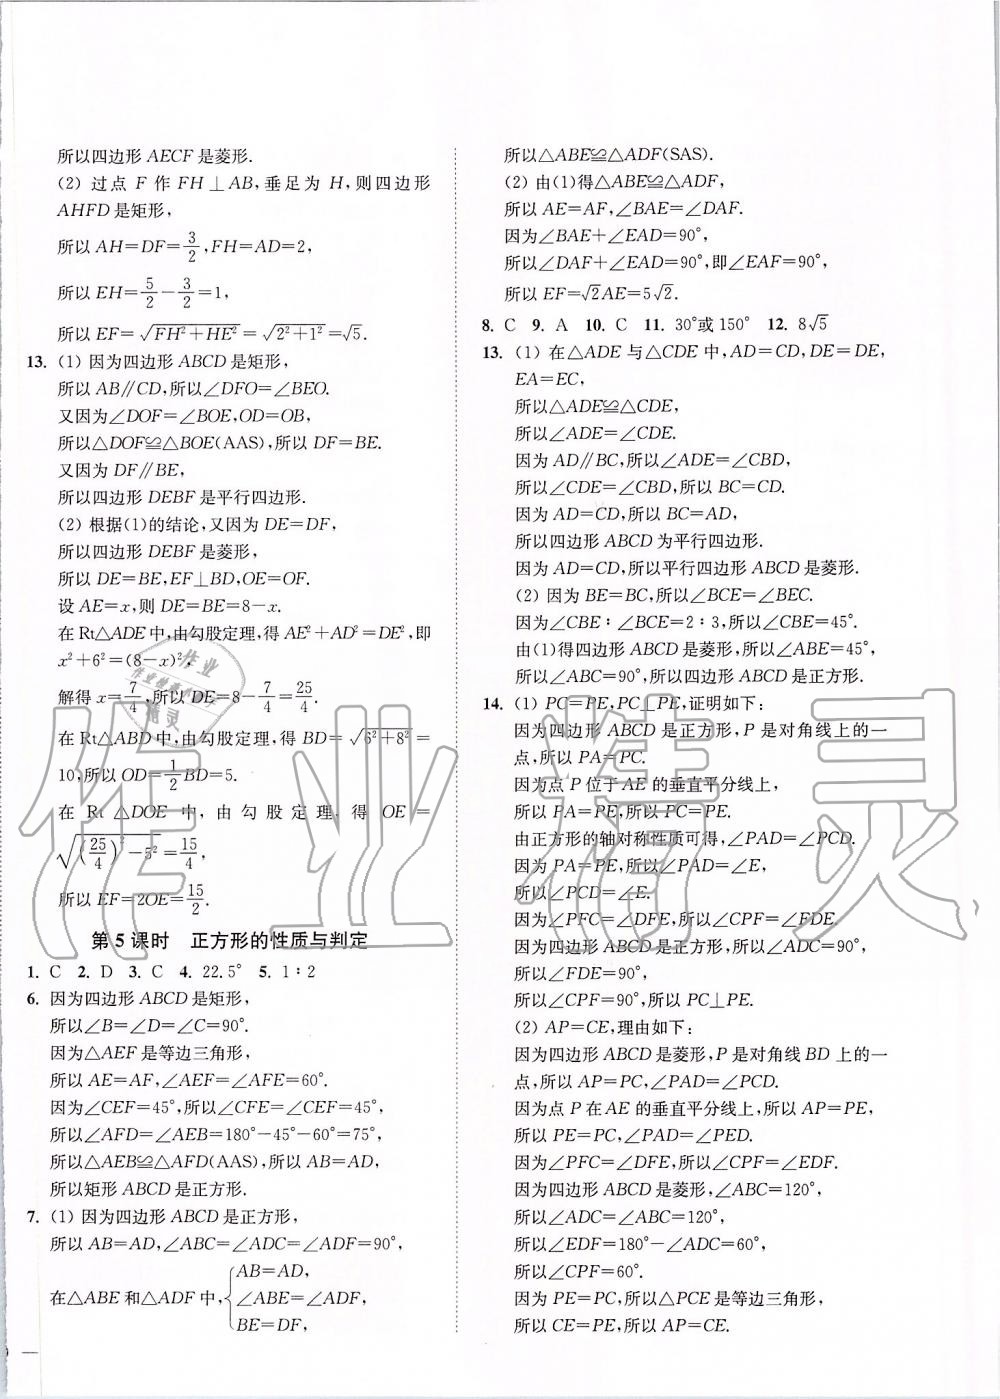 所以四边形 AECF 是菱形.
(2) 过点 F 作 FH⊥AB,垂足为 H,则四边形
AHFD 是矩形,
所以 AH=DF=3/2,FH=AD=2,
所以 EH=5/2-3/2=1,
所以 EF=√(FH²+HE²)=√(2²+1²)=√5.
13. (1) 因为四边形 ABCD 是矩形,
所以 AB∥CD,所以∠DFO=∠BEO.
又因为∠DOF=∠BOE,OD=OB,
所以△DOF≌△BOE(AAS),所以 DF=BE.
又因为 DF∥BE,
所以四边形 DEBF 是平行四边形.
(2) 根据(1)的结论,又因为 DE=DF,
所以四边形 DEBF 是菱形,
所以 DE=BE,EF⊥BD,OE=OF.
设 AE=x,则 DE=BE=8-x.
在 Rt△ADE 中,由勾股定理,得 AE²+AD²=DE²,即
x²+6²=(8-x)²,
解得 x=7/4,所以 DE=8-7/4=25/4.
在 Rt△ABD 中,由勾股定理,得 BD=√(6²+8²)=
10,所以 OD=1/2BD=5.
在 Rt△DOE 中,由勾股定理,得 OE=
√((25/4)²-5²)=15/4,
所以 EF=2OE=15/2.
第 5 课时 正方形的性质与判定
1. C 2. D 3. C 4. 22.5° 5. 1∶2
6. 因为四边形 ABCD 是矩形,
所以∠B=∠D=∠C=90°.
因为△AEF 是等边三角形,
所以 AE=AF,∠AEF=∠AFE=60°.
因为∠CEF=45°,所以∠CFE=∠CEF=45°,
所以∠AFD=∠AEB=180°-45°-60°=75°,
所以△AEB≌△AFD(AAS),所以 AB=AD,
所以矩形 ABCD 是正方形.
7. (1) 因为四边形 ABCD 是正方形,
所以 AB=AD,∠ABC=∠ADC=∠ADF=90°,
在△ABE 和△ADF 中,{AB=AD,
∠ABE=∠ADF,
BE=DF,
所以△ABE≌△ADF(SAS).
(2) 由(1)得△ABE≌△ADF,
所以 AE=AF,∠BAE=∠DAF.
因为∠BAE+∠EAD=90°,
所以∠DAF+∠EAD=90°,即∠EAF=90°,
所以 EF=√2AE=5√2.
8. C 9. A 10. C 11. 30°或 150° 12. 8√5
13. (1) 在△ADE 与△CDE 中,AD=CD,DE=DE,
EA=EC,
所以△ADE≌△CDE,
所以∠ADE=∠CDE.
因为 AD∥BC,所以∠ADE=∠CBD,
所以∠CDE=∠CBD,所以 BC=CD.
因为 AD=CD,所以 BC=AD,
所以四边形 ABCD 为平行四边形.
因为 AD=CD,所以平行四边形 ABCD 是菱形.
(2) 因为 BE=BC,所以∠BCE=∠BEC.
因为∠CBE∶∠BCE=2∶3,所以∠CBE=45°.
由(1)得四边形 ABCD 是菱形,所以∠ABE=45°,
所以∠ABC=90°,所以四边形 ABCD 是正方形.
14. (1) PC=PE,PC⊥PE,证明如下:
因为四边形 ABCD 是正方形,P 是对角线上的一
点,所以 PA=PC.
因为点 P 位于 AE 的垂直平分线上,
所以 PA=PE,所以 PC=PE.
由正方形的轴对称性质可得,∠PAD=∠PCD.
因为 PA=PE,所以∠PAD=∠E,
所以∠PCD=∠E.
因为∠PFC=∠DFE,所以∠CPF=∠FDE.
因为四边形 ABCD 是正方形,所以∠ADC=90°,
所以∠FDE=90°,
所以∠CPF=90°,所以 PC⊥PE.
(2) AP=CE,理由如下:
因为四边形 ABCD 是菱形,P 是对角线 BD 上的一
点,所以 AP=PC,∠PAD=∠PCD.
因为点 P 在 AE 的垂直平分线上,所以 AP=PE,
所以 PE=PC,∠PAD=∠PED.
因为∠PFC=∠DFE,所以∠CPF=∠EDF.
因为四边形 ABCD 是菱形,∠ABC=120°,
所以∠ADC=∠ABC=120°,
所以∠EDF=180°-∠ADC=60°,
所以∠CPF=60°.
因为 PE=PC,所以△PCE 是等边三角形,
所以 CE=PE,所以 AP=CE.
作业精灵